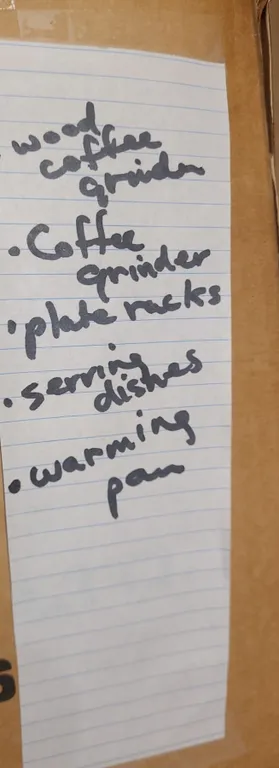 wood
coffee
grinder
• Coffee
grinder
• plate racks
• serving
dishes
• warming
pan
S